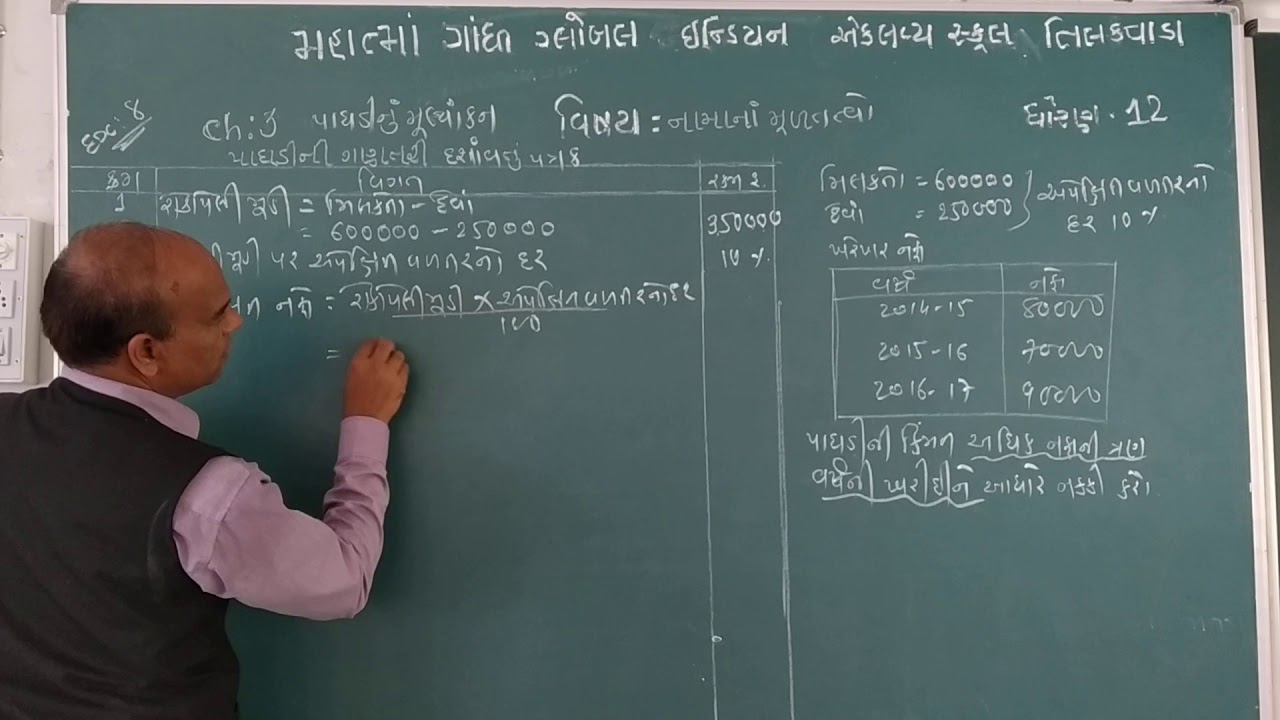 મહાત્માં ગાંધી ગ્લોબલ ઇન્ડિયન એકલવ્ય સ્કૂલ તિલકવાડા
દાઃ ૪
ch:3 પાઘડીનું મૂલ્યાંકન વિષય : નામાનાં મૂળતત્વો ધોરણ. 12
પાઘડીની ગણતરી દર્શાવતું પત્રક
ક્રમ વિગત રકમ રૂ.
1 રોકાયેલી મૂડી = મિલકતો - દેવાં
= 600000 - 250000 350000
મૂડી પર અપેક્ષિત વળતરનો દર 10 %
નફો = રોકાયેલી મૂડી X અપેક્ષિત વળતરનો દર
100
=
મિલકતો = 600000 અપેક્ષિત વળતરનો
દેવાં = 250000 દર 10 %
ખરેખર નફો
વર્ષ નફો
2014-15 80000
2015-16 70000
2016-17 90000
પાઘડીની કિંમત અધિક નફાની ત્રણ
વર્ષની ખરીદીને આધારે નક્કી કરો.